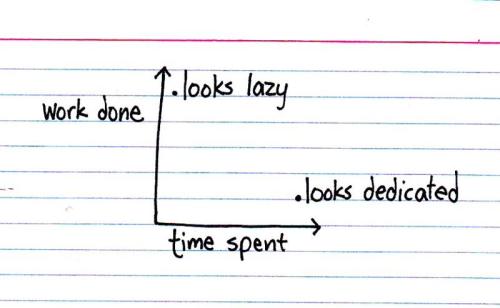 looks lazy
work done
looks dedicated
time spent